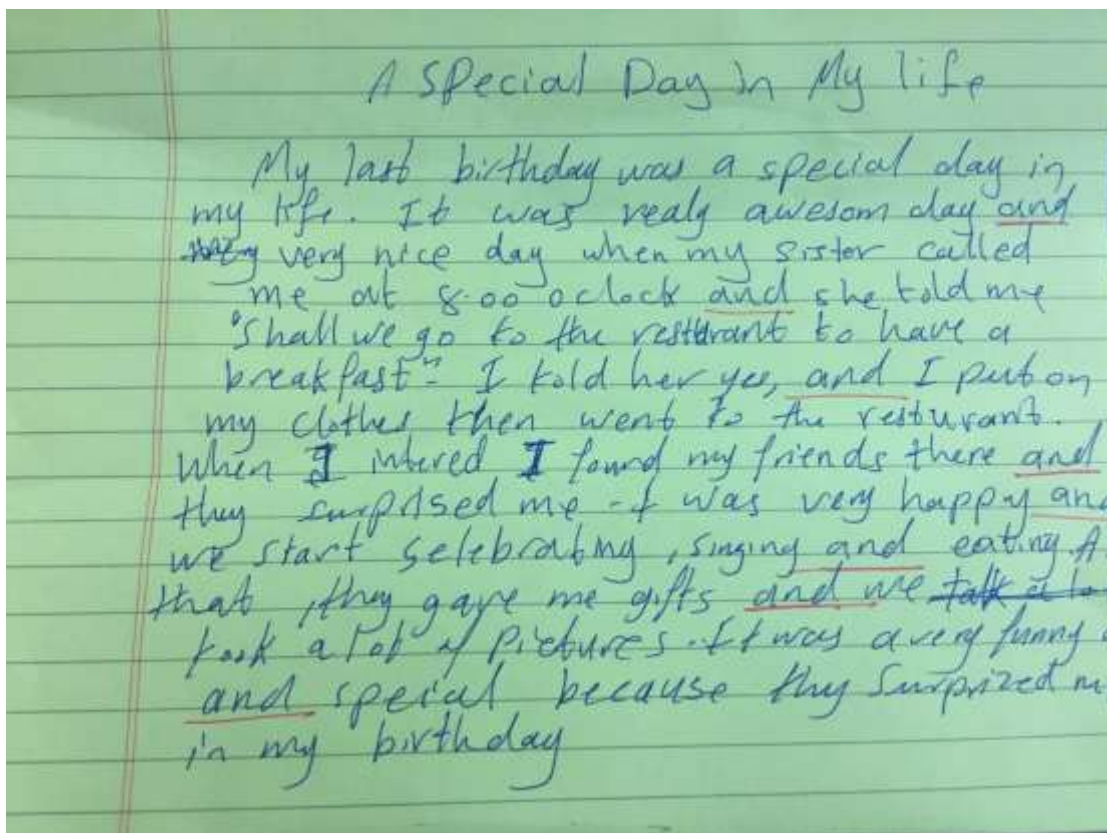 A Special Day in My life
My last birthday was a special day in
my life. It was realy awesom day and
very nice day when my sister called
me at 8:00 oclock and she told me
"Shall we go to the resturant to have a
breakfast". I told her yes, and I put on
my clothes then went to the resturant.
When I intered I found my friends there and
they surprised me. I was very happy and
we start selebrating, singing and eating. A
that, they gave me gifts and we talk a lo
took a lot of pictures. It was a very funny
and speical because they surprized m
in my birthday